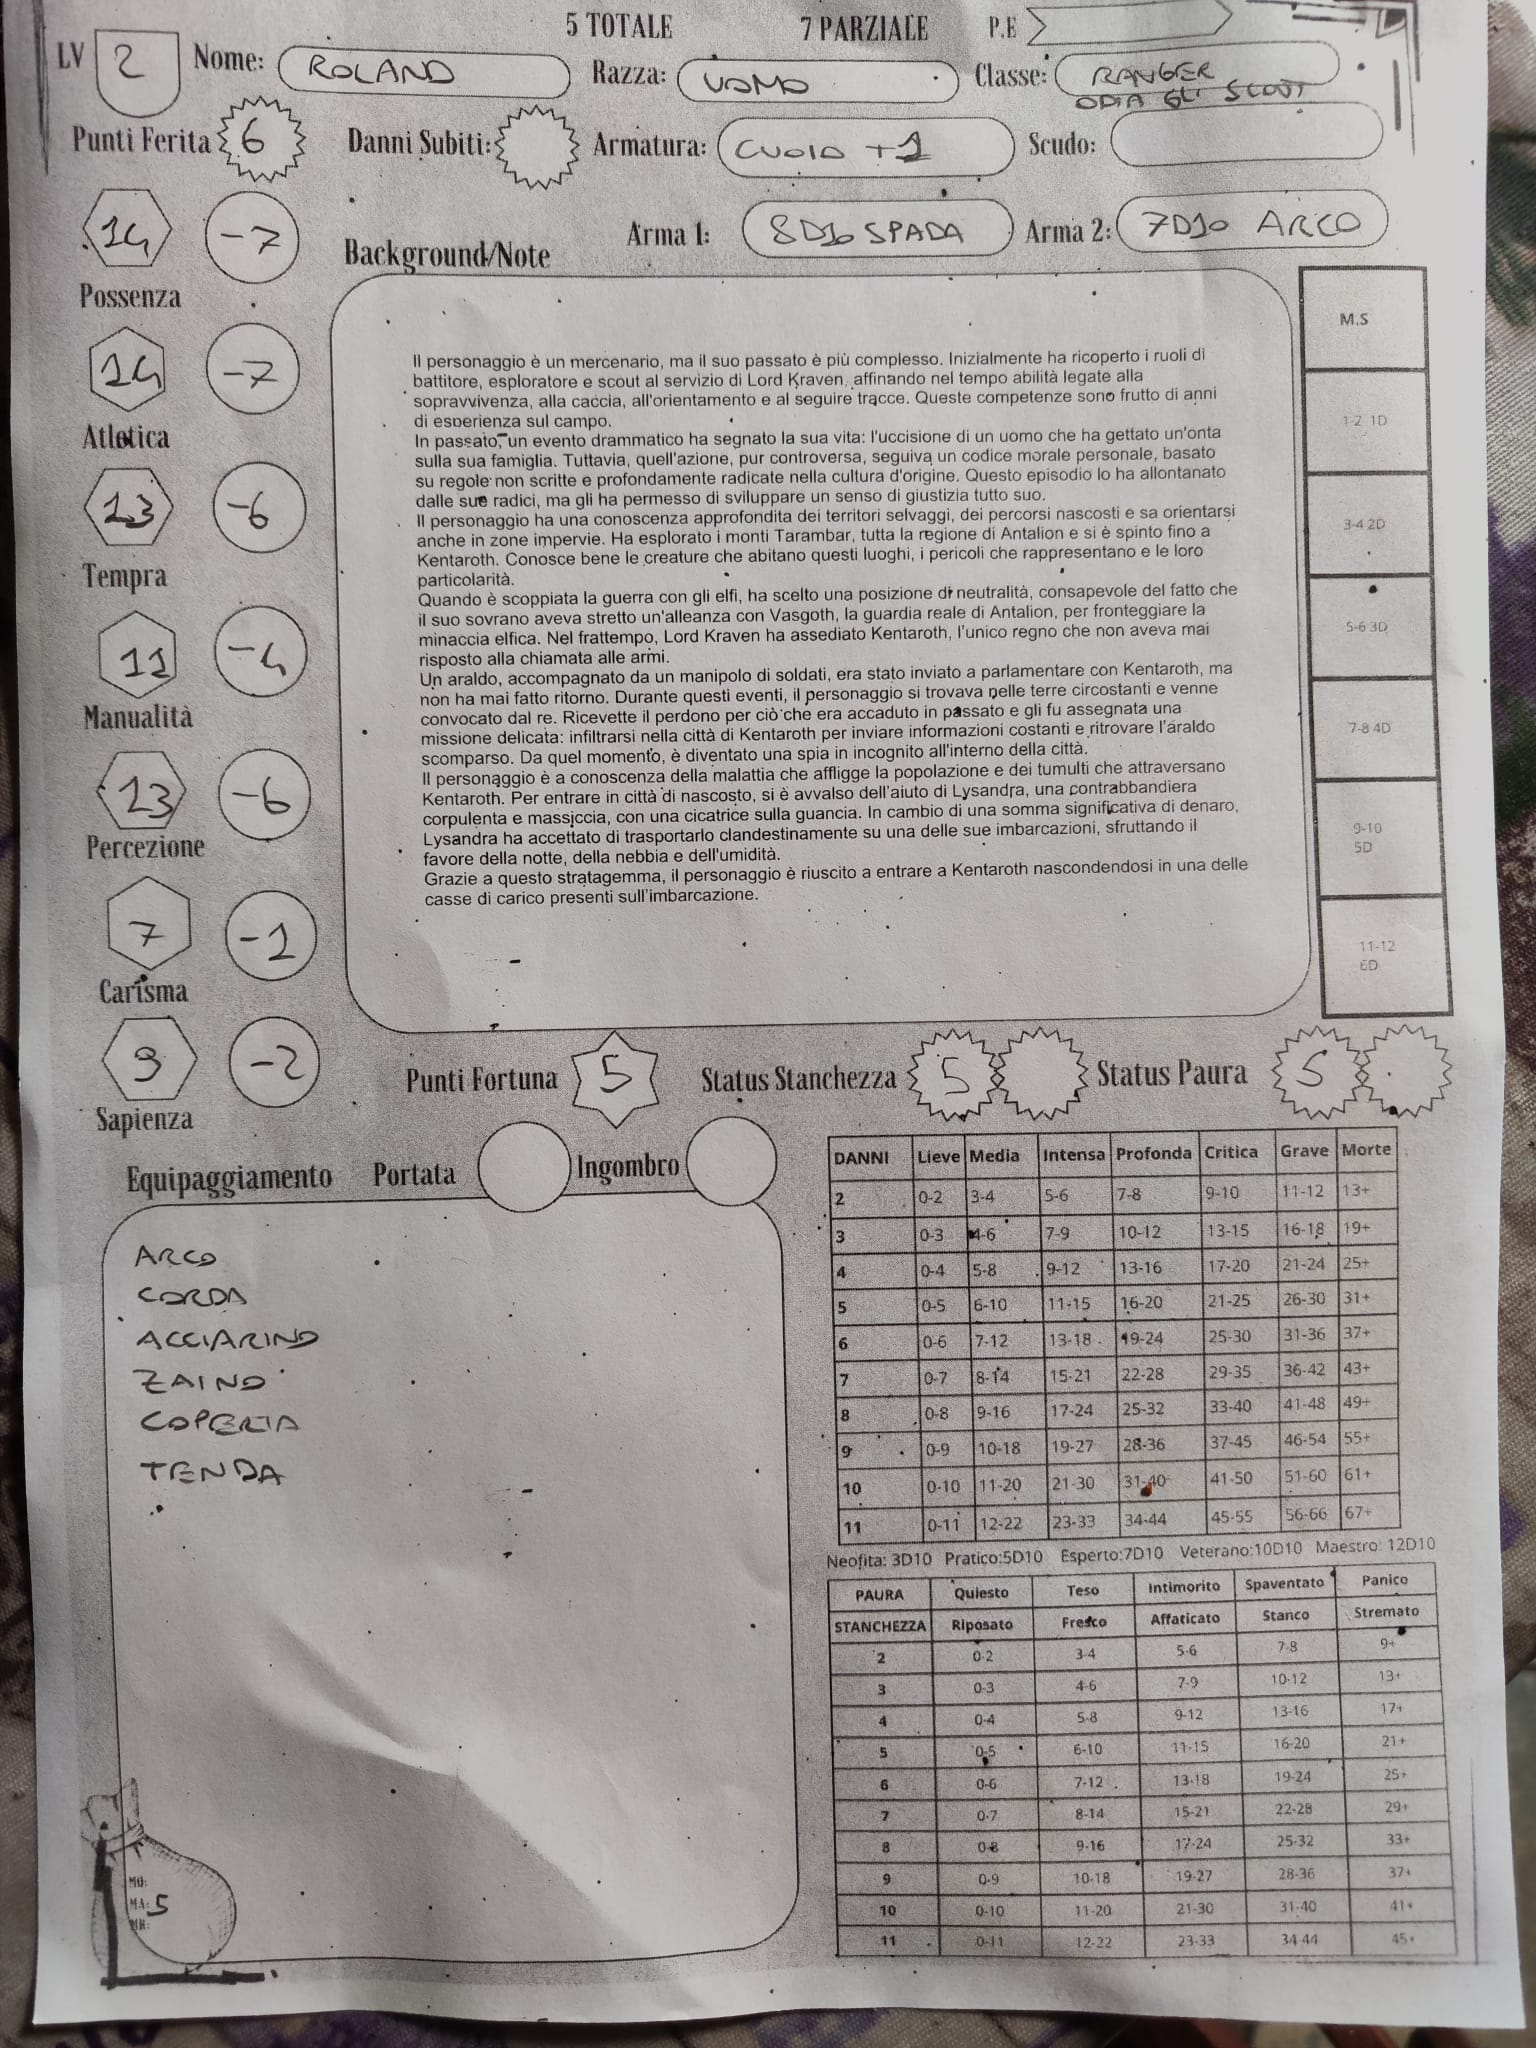 5 TOTALE 7 PARZIALE P.E
LV 2 Nome: ROLAND Razza: UOMO Classe: RANGER
ODIA GLI SCOUT
Punti Ferita 6 Danni Subiti: Armatura: CUOIO +1 Scudo:
14 -7
Possenza
Background/Note Arma 1: 8D10 SPADA Arma 2: 7D10 ARCO
14 -7
Atletica
13 -6
Tempra
11 -4
Manualità
13 -6
Percezione
7 -1
Carisma
9 -2
Sapienza
Il personaggio è un mercenario, ma il suo passato è più complesso. Inizialmente ha ricoperto i ruoli di
battitore, esploratore e scout al servizio di Lord Kraven, affinando nel tempo abilità legate alla
sopravvivenza, alla caccia, all'orientamento e al seguire tracce. Queste competenze sono frutto di anni
di esperienza sul campo.
In passato, un evento drammatico ha segnato la sua vita: l'uccisione di un uomo che ha gettato un'onta
sulla sua famiglia. Tuttavia, quell'azione, pur controversa, seguiva un codice morale personale, basato
su regole non scritte e profondamente radicate nella cultura d'origine. Questo episodio lo ha allontanato
dalle sue radici, ma gli ha permesso di sviluppare un senso di giustizia tutto suo.
Il personaggio ha una conoscenza approfondita dei territori selvaggi, dei percorsi nascosti e sa orientarsi
anche in zone impervie. Ha esplorato i monti Tarambar, tutta la regione di Antalion e si è spinto fino a
Kentaroth. Conosce bene le creature che abitano questi luoghi, i pericoli che rappresentano e le loro
particolarità.
Quando è scoppiata la guerra con gli elfi, ha scelto una posizione di neutralità, consapevole del fatto che
il suo sovrano aveva stretto un'alleanza con Vasgoth, la guardia reale di Antalion, per fronteggiare la
minaccia elfica. Nel frattempo, Lord Kraven ha assediato Kentaroth, l'unico regno che non aveva mai
risposto alla chiamata alle armi.
Un araldo, accompagnato da un manipolo di soldati, era stato inviato a parlamentare con Kentaroth, ma
non ha mai fatto ritorno. Durante questi eventi, il personaggio si trovava nelle terre circostanti e venne
convocato dal re. Ricevette il perdono per ciò che era accaduto in passato e gli fu assegnata una
missione delicata: infiltrarsi nella città di Kentaroth per inviare informazioni costanti e ritrovare l'araldo
scomparso. Da quel momento, è diventato una spia in incognito all'interno della città.
Il personaggio è a conoscenza della malattia che affligge la popolazione e dei tumulti che attraversano
Kentaroth. Per entrare in città di nascosto, si è avvalso dell'aiuto di Lysandra, una contrabbandiera
corpulenta e massiccia, con una cicatrice sulla guancia. In cambio di una somma significativa di denaro,
Lysandra ha accettato di trasportarlo clandestinamente su una delle sue imbarcazioni, sfruttando il
favore della notte, della nebbia e dell'umidità.
Grazie a questo stratagemma, il personaggio è riuscito a entrare a Kentaroth nascondendosi in una delle
casse di carico presenti sull'imbarcazione.
M.S
1-2 1D
3-4 2D
5-6 3D
7-8 4D
9-10
5D
11-12
6D
Punti Fortuna 5 Status Stanchezza 5 Status Paura 5
Equipaggiamento Portata Ingombro
ARCO
CORDA
ACCIARINO
ZAINO
COPERTA
TENDA
MO:
MA: 5
MR:
DANNI Lieve Media Intensa Profonda Critica Grave Morte
2 0-2 3-4 5-6 7-8 9-10 11-12 13+
3 0-3 4-6 7-9 10-12 13-15 16-18 19+
4 0-4 5-8 9-12 13-16 17-20 21-24 25+
5 0-5 6-10 11-15 16-20 21-25 26-30 31+
6 0-6 7-12 13-18 19-24 25-30 31-36 37+
7 0-7 8-14 15-21 22-28 29-35 36-42 43+
8 0-8 9-16 17-24 25-32 33-40 41-48 49+
9 0-9 10-18 19-27 28-36 37-45 46-54 55+
10 0-10 11-20 21-30 31-40 41-50 51-60 61+
11 0-11 12-22 23-33 34-44 45-55 56-66 67+
Neofita: 3D10 Pratico:5D10 Esperto:7D10 Veterano:10D10 Maestro: 12D10
PAURA Quiesto Teso Intimorito Spaventato Panico
STANCHEZZA Riposato Fresco Affaticato Stanco Stremato
2 0-2 3-4 5-6 7-8 9+
3 0-3 4-6 7-9 10-12 13+
4 0-4 5-8 9-12 13-16 17+
5 0-5 6-10 11-15 16-20 21+
6 0-6 7-12 13-18 19-24 25+
7 0-7 8-14 15-21 22-28 29+
8 0-8 9-16 17-24 25-32 33+
9 0-9 10-18 19-27 28-36 37+
10 0-10 11-20 21-30 31-40 41+
11 0-11 12-22 23-33 34-44 45+